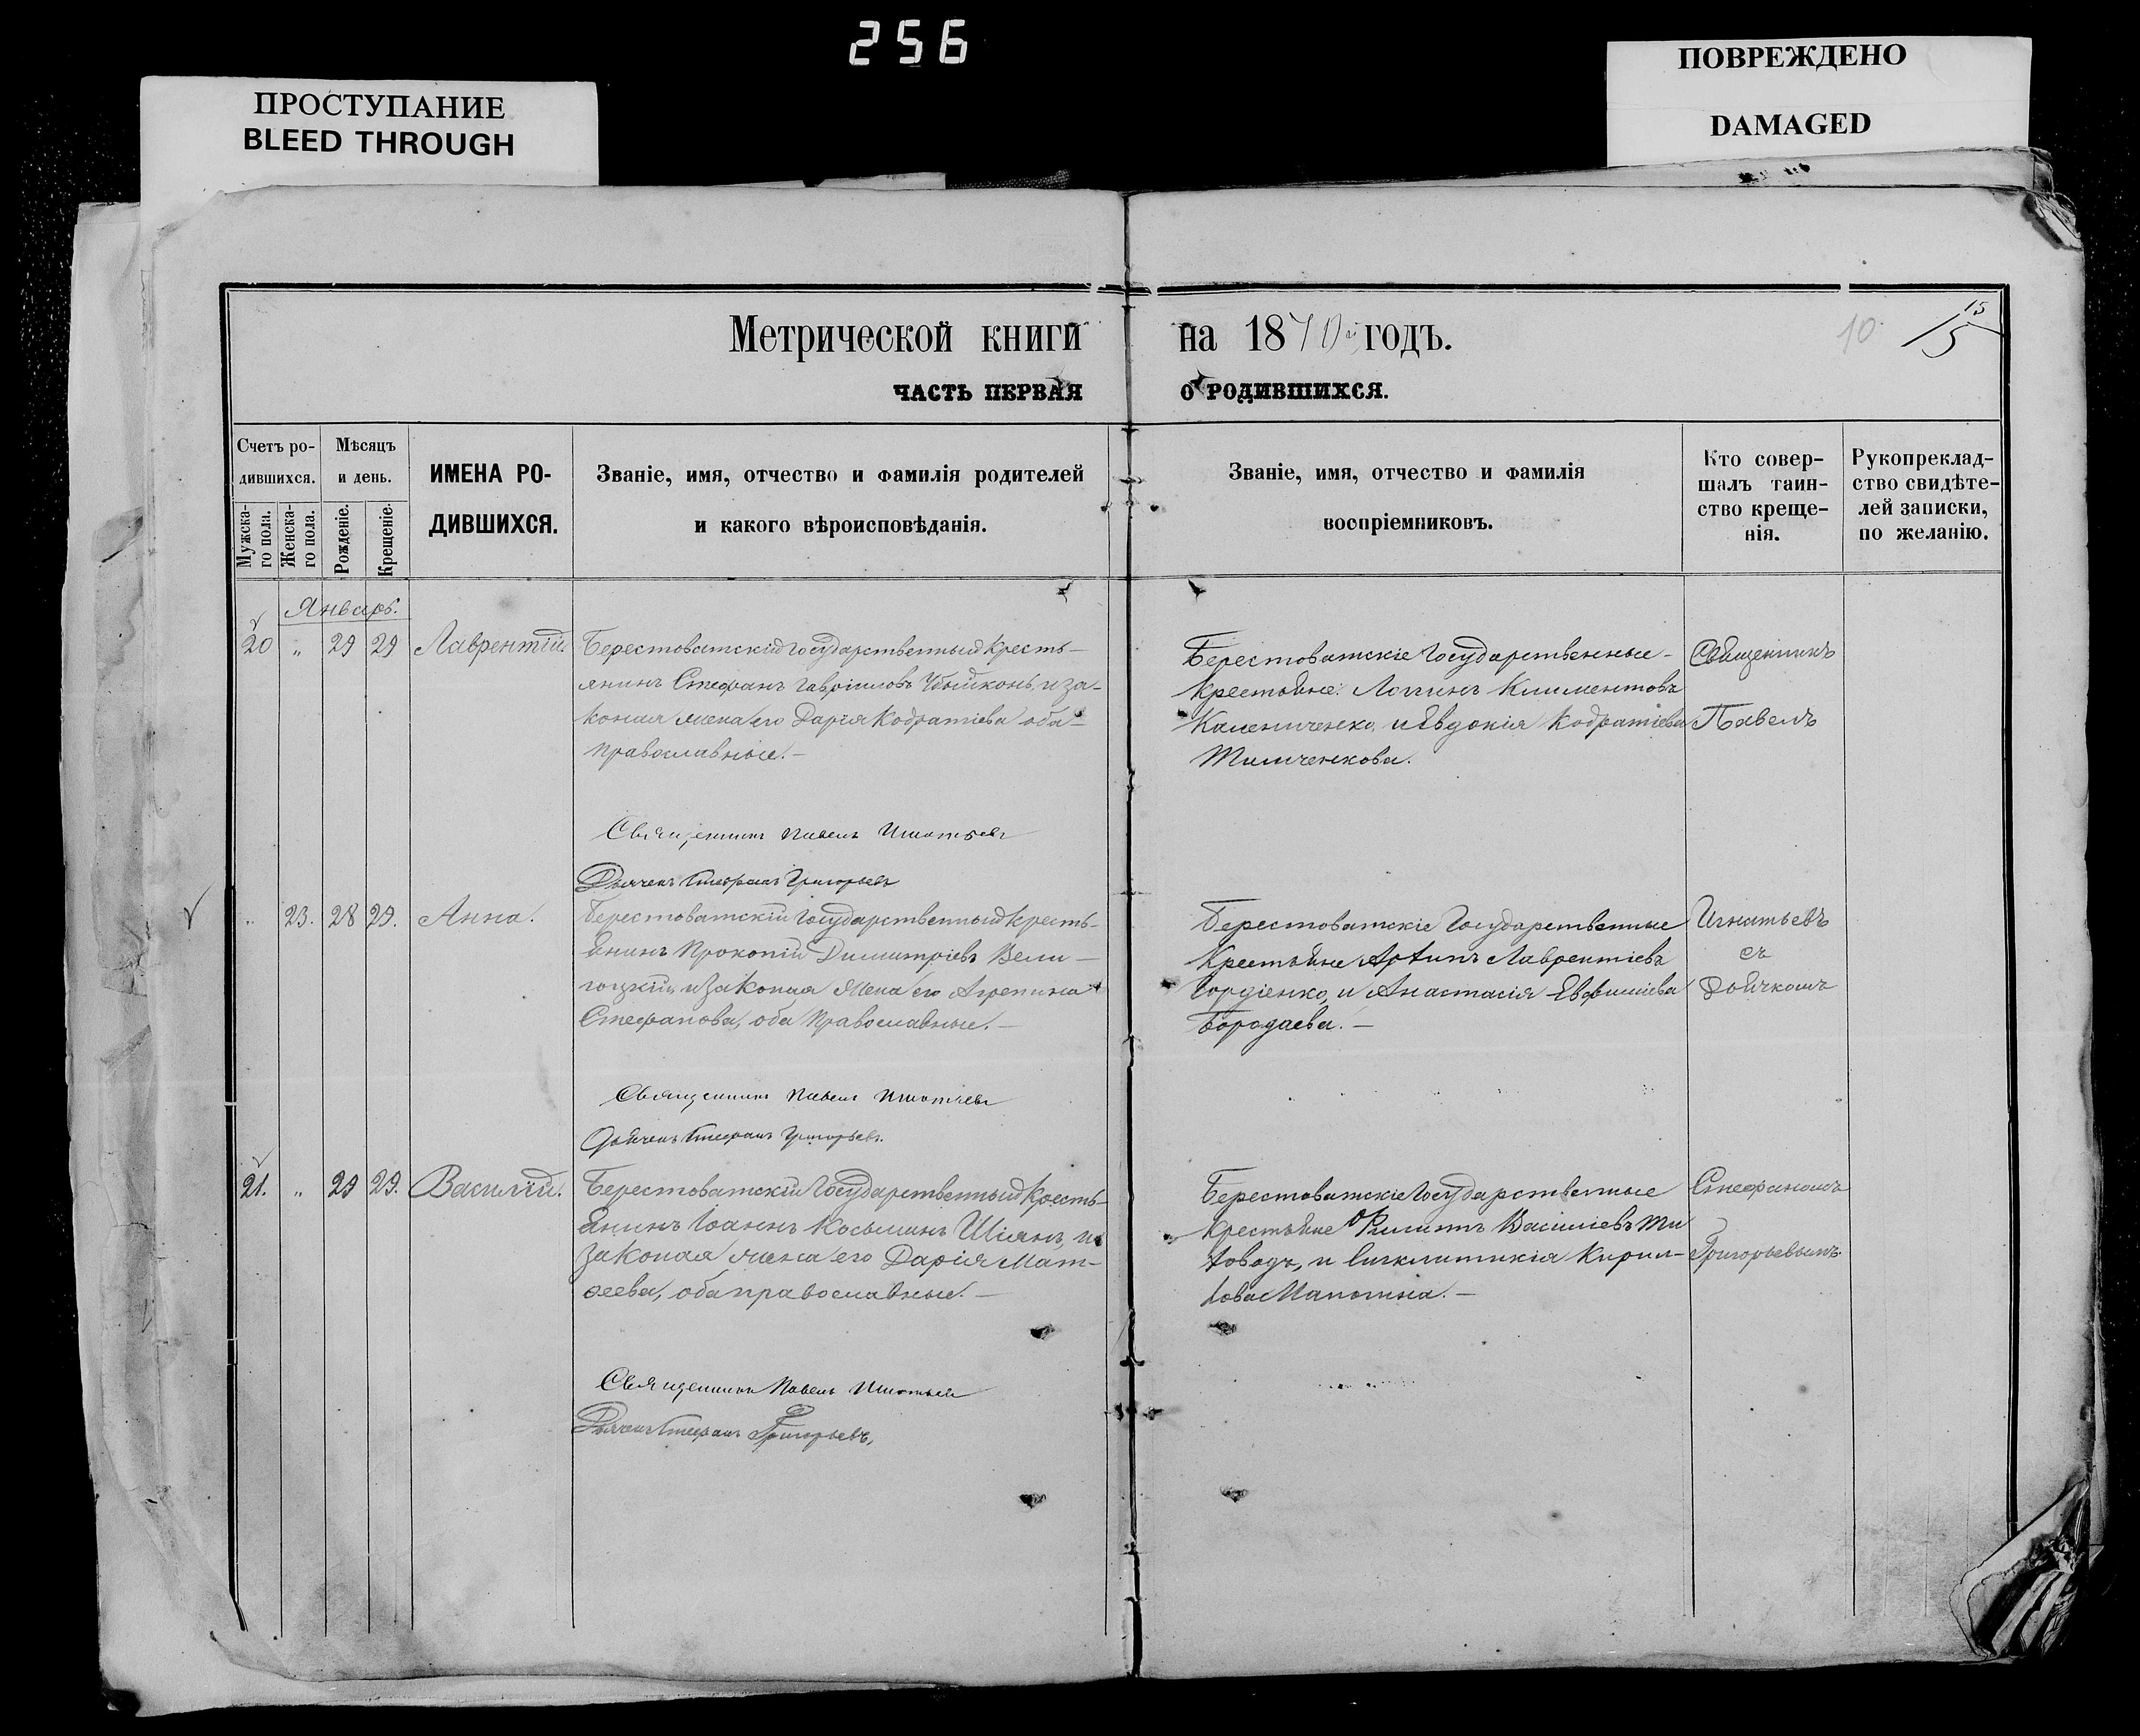 256
ПРОСТУПАНИЕ
BLEED THROUGH
ПОВРЕЖДЕНО
DAMAGED
Метрической книги на 1870й годъ.
10. 15
15
ЧАСТЬ ПЕРВАЯ О РОДИВШИХСЯ.
Счетъ ро-
дившихся.
Мужска-
го пола.
Женска-
го пола.
Мѣсяцъ
и день.
Рожденіе.
Крещеніе.
ИМЕНА РО-
ДИВШИХСЯ.
Званіе, имя, отчество и фамилія родителей
и какого вѣроисповѣданія.
Званіе, имя, отчество и фамилія
воспріемниковъ.
Кто совер-
шалъ таин-
ство креще-
нія.
Рукоприклад-
ство свидѣте-
лей записки,
по желанію.
Январь.
20 „ 29 29 Лаврентій.
Берестоватскій Государственный кресть-
янинъ Стефанъ Гавріиловъ и за-
коная жена его Дарія Кодратіева оба
православные.-
Священникъ Павелъ Игнатьевъ
Дьячекъ Стефанъ Григорьевъ
Берестоватскіе Государственные-
крестьяне: Логгинъ Климентовъ
Калениченко, и Евдокія Кодратіева
Тимченкова.
Священникъ
Павелъ
„ 23. 28 29. Анна.
Берестоватскій Государственный кресть-
янинъ Прокопій Димитріевъ Вели-
гоцкій, и законая жена его Агрепина
Стефанова, оба православные.-
Священникъ Павелъ Игнатьевъ
Дьячекъ Стефанъ Григорьевъ.
Берестоватскіе Государственные
крестьяне Лаврентіевъ
Гордіенко, и Анастасія Евфиміева
Бородаева.-
Игнатьевъ
съ
Дьячкомъ
21. „ 29 29. Василій.
Берестоватскій Государственный кресть-
янинъ Іоаннъ Косьминъ Шіянъ, и
законая жена его Дарія Мат-
ѳеева, оба православные.-
Священникъ Павелъ Игнатьевъ
Дьячекъ Стефанъ Григорьевъ,
Берестоватскіе Государственные
крестьяне Филиппъ Василіевъ
и Кирил-
лова
Стефаномъ
Григорьевымъ.